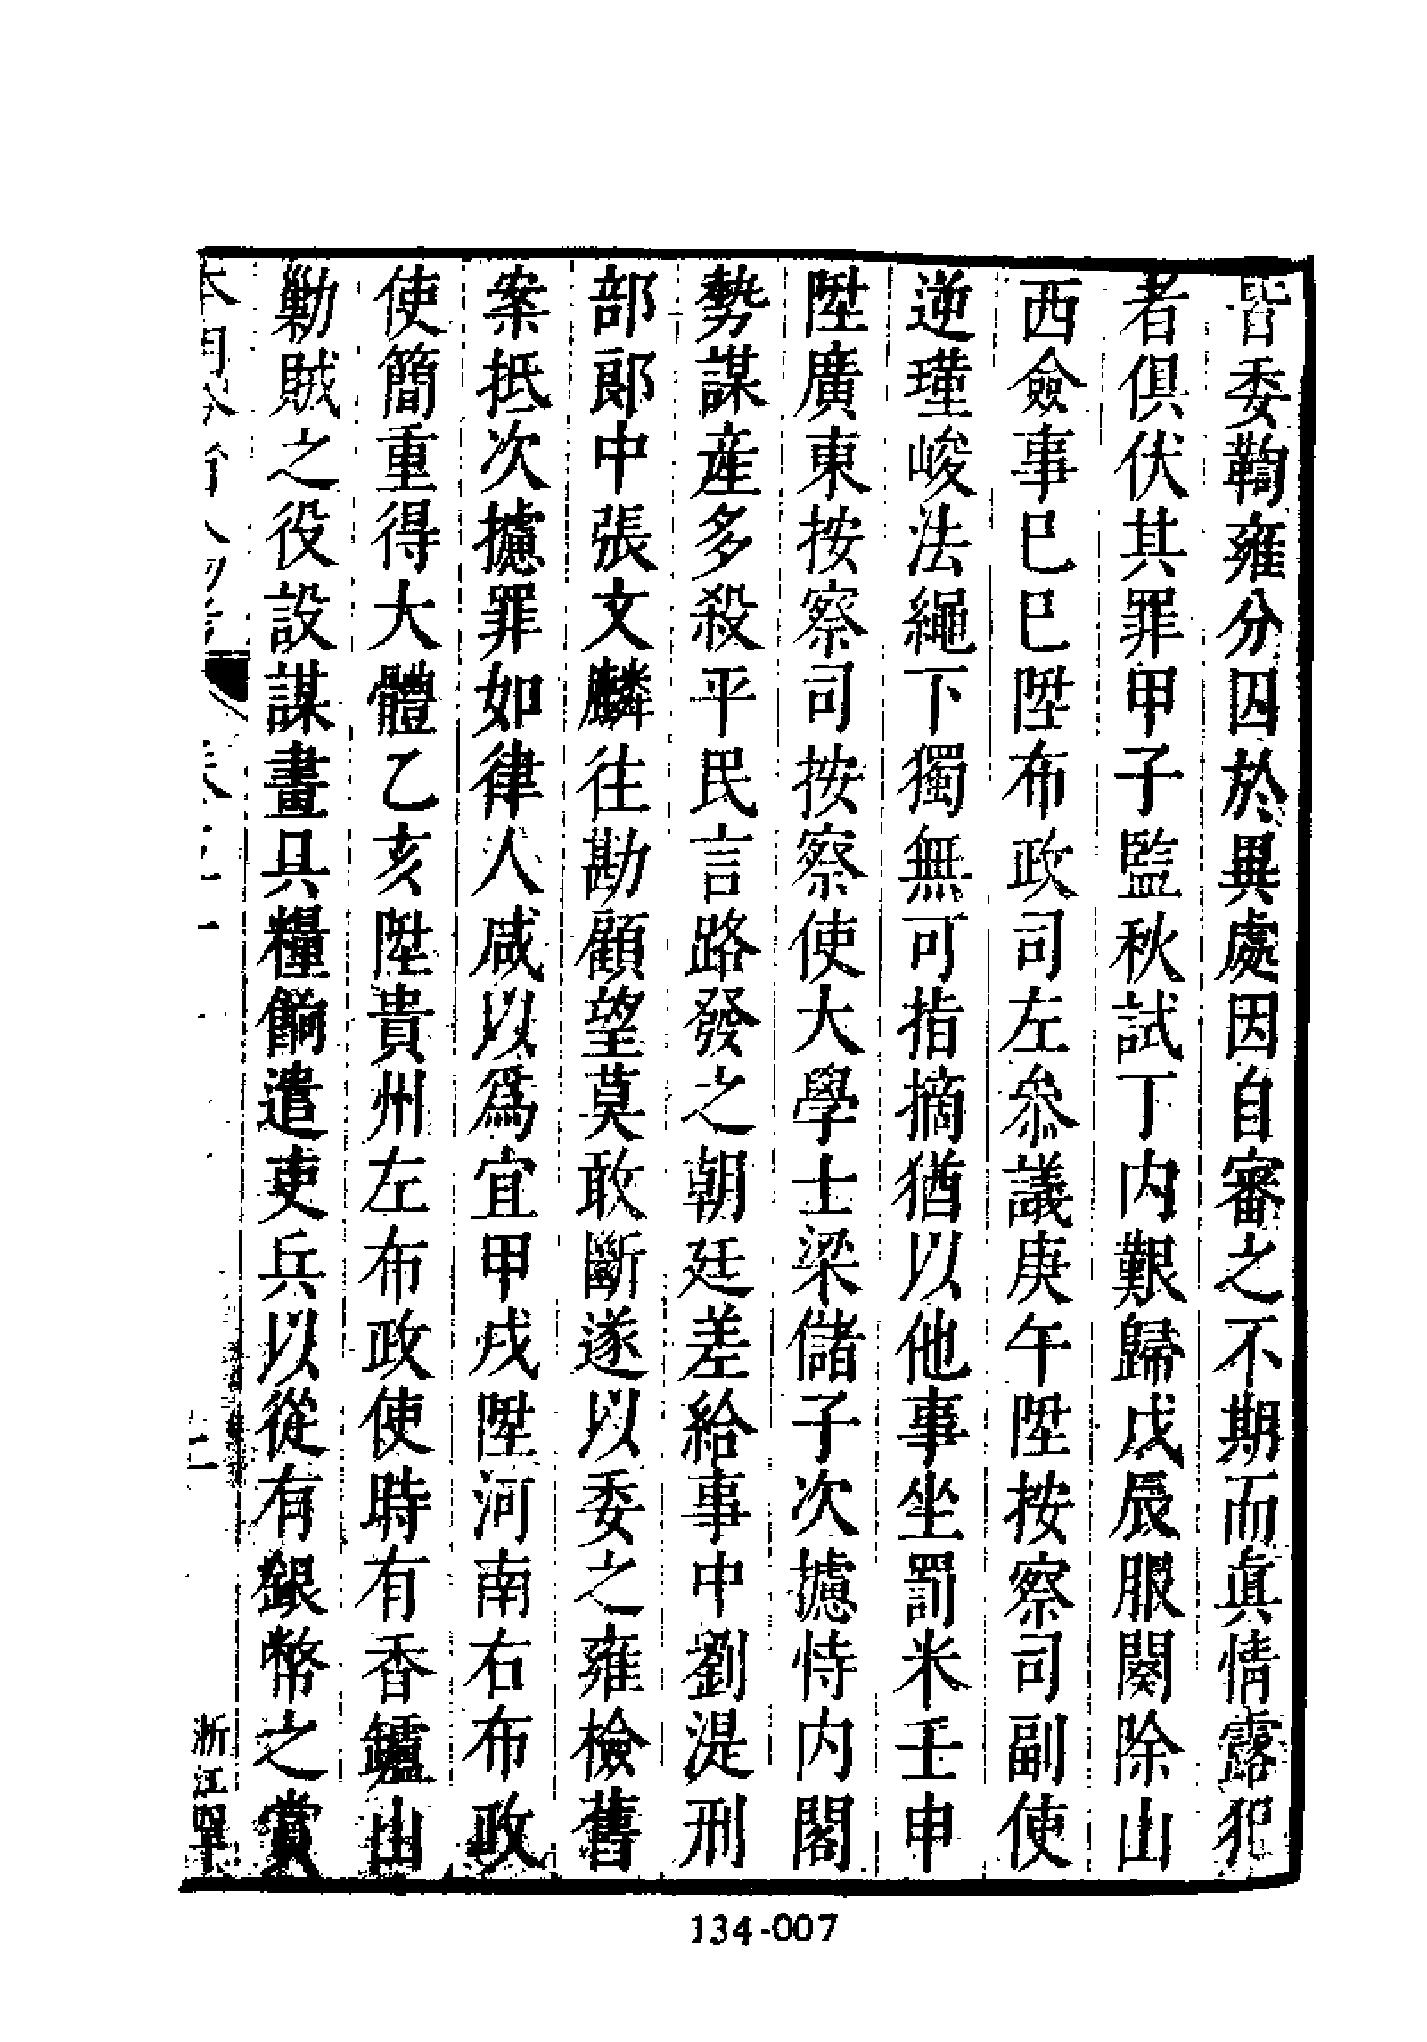 皆委鞫雍分囚於異處因自審之不期而眞情露犯
者俱伏其罪甲子監秋試丁内艱歸戊辰服闋除山
西僉事巳巳陞布政司左叅議庚午陞按察司副使
逆瑾峻法繩下獨無可指摘猶以他事坐罰米壬申
陞廣東按察司按察使大學士梁儲子次攄恃内閣
勢謀産多殺平民言路發之朝廷差給事中劉湜刑
部郎中張文麟往勘顧望莫敢斷遂以委之雍檢舊
案抵次攄罪如律人咸以爲宜甲戌陞河南右布政
使簡重得大體乙亥陞貴州左布政使時有香鑪山
勦賊之役設謀畫具糧餉遣吏兵以從有銀幣之賞
本朝分省人物考
卷
浙江
134-007